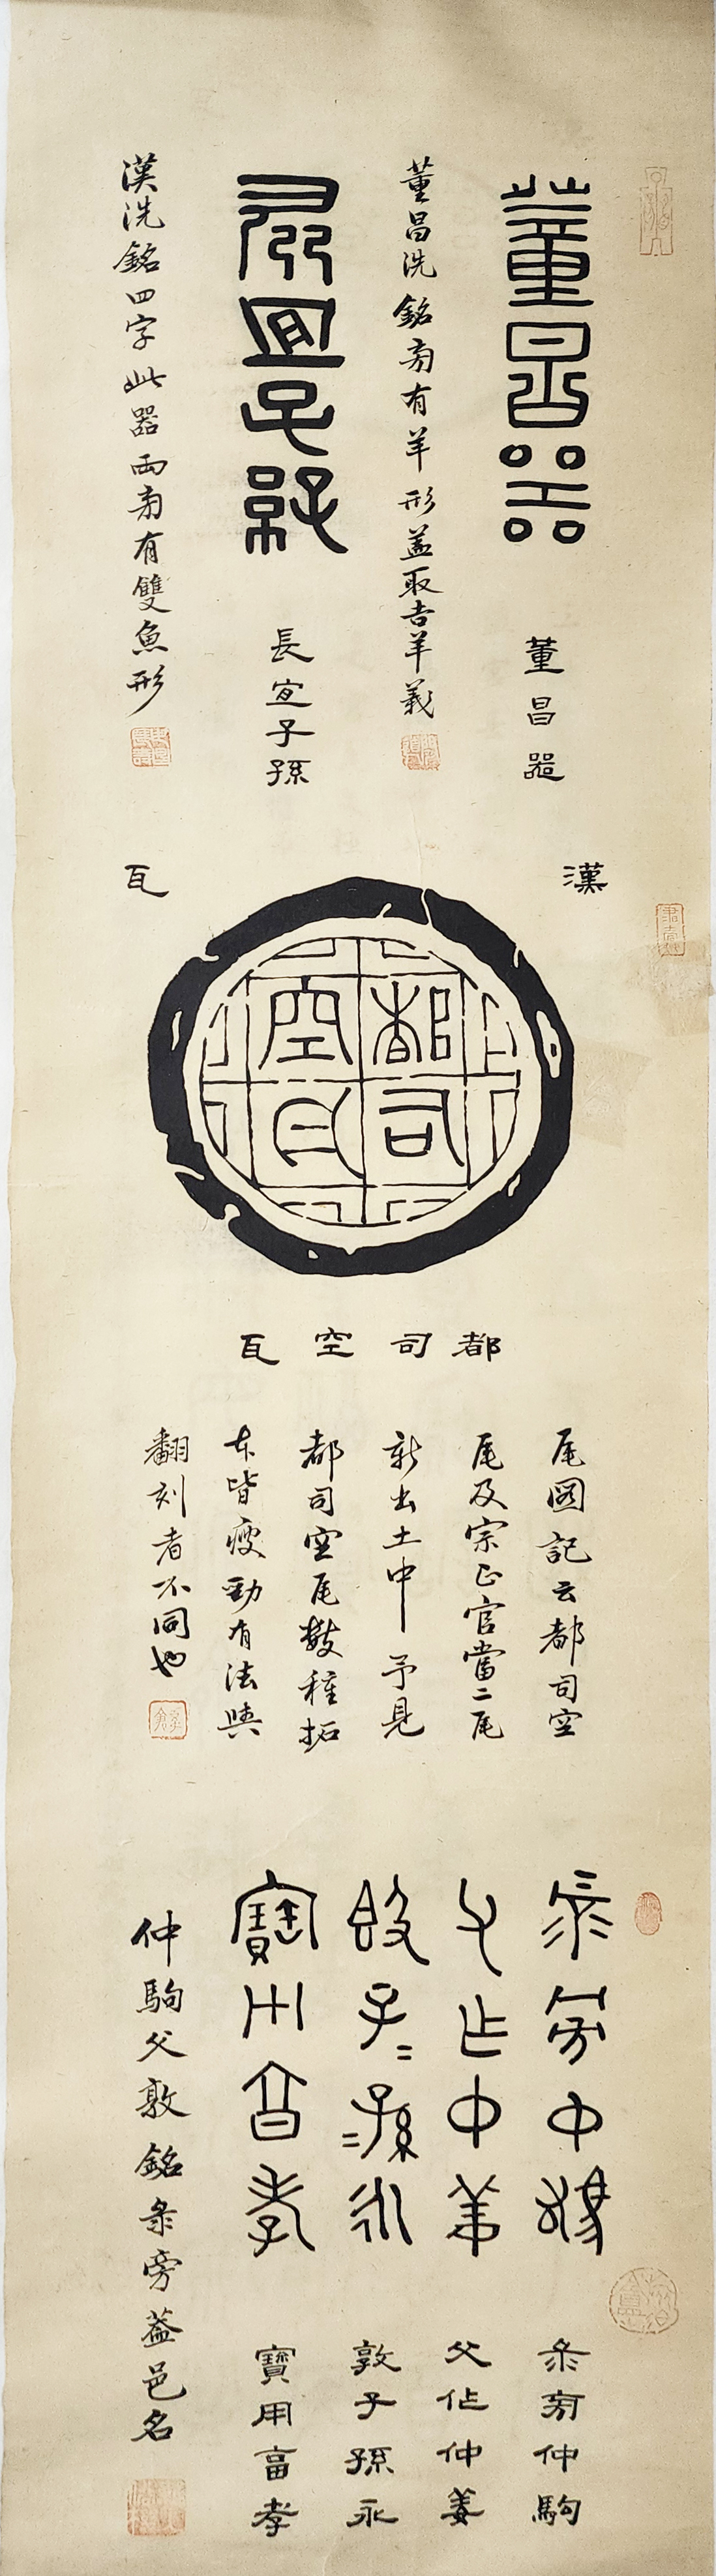 董昌器
董昌器
董昌洗銘旁有羊形蓋取吉羊義
長宜子孫
長宜子孫
漢洗銘四字此器兩旁有雙魚形
漢瓦
都司空瓦
都司空瓦
瓦圖記云都司空
瓦及宗正官當二瓦
新出土中予見
都司空瓦數種拓
本皆瘦勁有法與
翻刻者不同也
彔旁仲駒
父作仲姜
敦子=孫=永
寶用享孝
彔旁仲駒
父作仲姜
敦子孫永
寶用亯孝
仲駒父敦銘彔旁蓋邑名